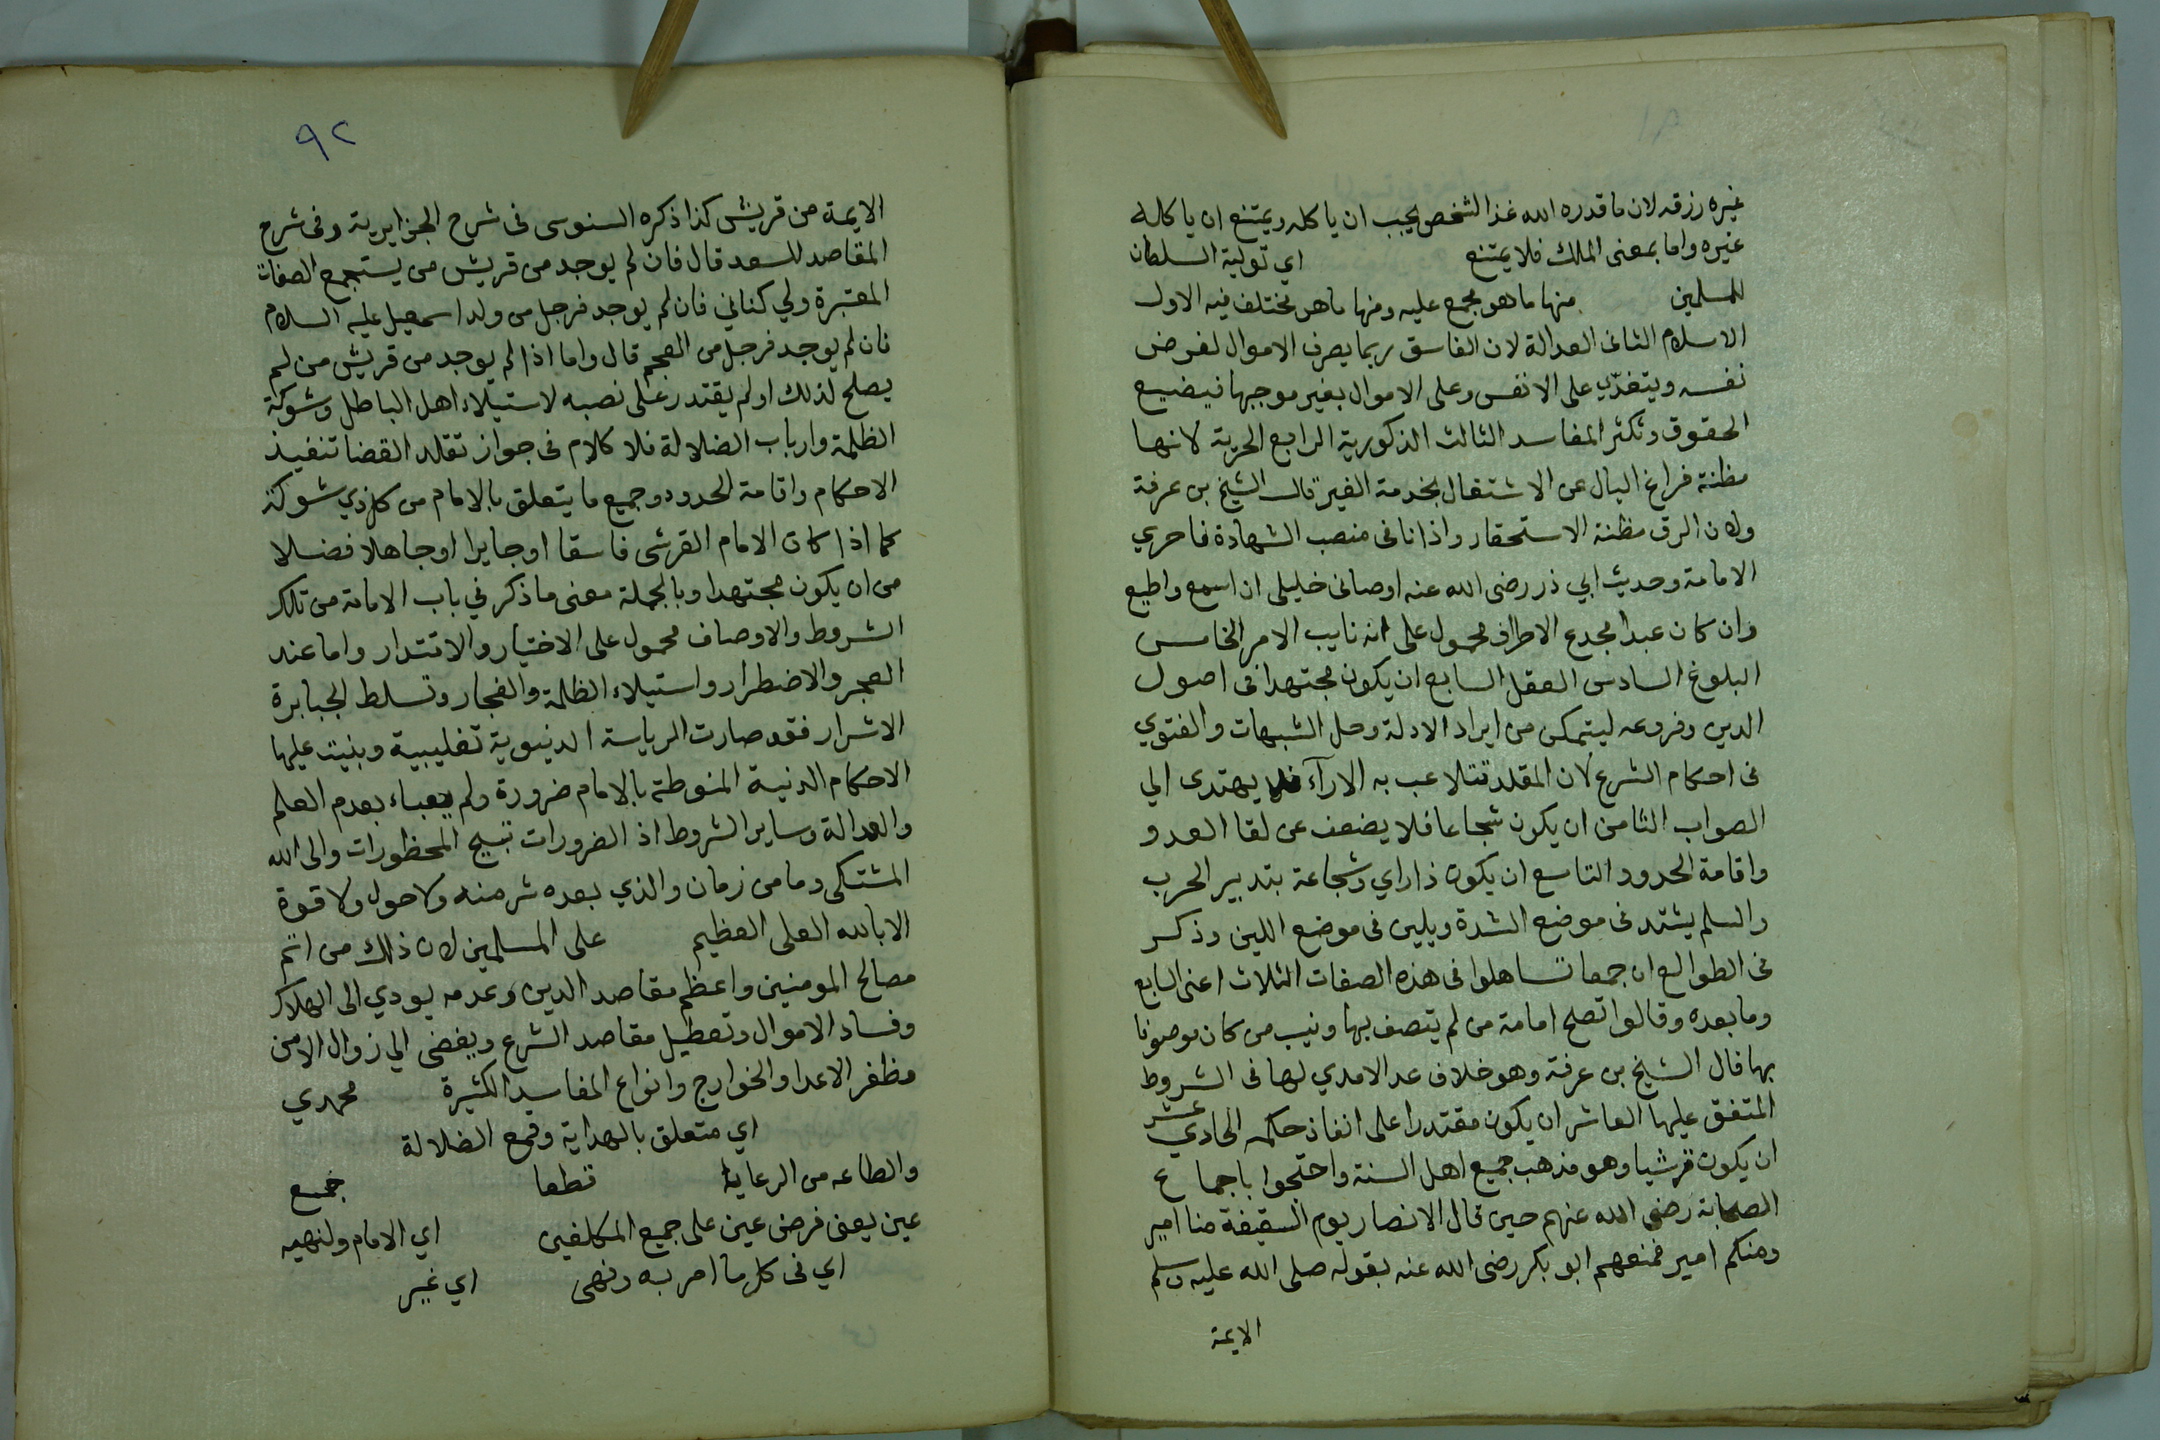 غيره رزقه لان ما قدره الله غذا لشخص يجب ان ياكله ويمتنع ان ياكله
غيره واما بمعنى الملك فلا يمتنع اي تولية السلطان
للمسلمين منها ما هو مجمع عليه ومنها ما هو مختلف فيه الاول
الاسلام الثانى العدالة لان الفاسق ربما يصرف الاموال لغرض
نفسه ويتعدي على الانفس وعلى الاموال بغير موجبها فيضيع
الحقوق وتكثر المفاسد الثالث الذكورية الرابع الحرية لانها
مظنة فراغ البال عن الاشتغال بخدمة الغير قال الشيخ بن عرفة
ولان الرق مظنة الاستحقار واذا نافى منصب الشهادة فاحري
الامامة وحديث ابي ذر رضى الله عنه اوصانى خليلى ان اسمع واطيع
وان كان عبدا مجدع الاطراف محمول على انه نايب الامر الخامس
البلوغ السادس العقل السابع ان يكون مجتهدا فى اصول
الدين وفروعه ليتمكن من ايراد الادلة وحل الشبهات والفتوي
فى احكام الشرع لان المقلد تتلاعب به الارآء فلا يهتدى الي
الصواب الثامن ان يكون شجاعا فلا يضعف عن لقا العدو
واقامة الحدود التاسع ان يكون ذا راي وشجاعة بتدبير الحرب
والسلم يشتد فى موضع الشدة ويلين فى موضع اللين وذكر
فى الطوالع ان جمعا تساهلوا فى هذه الصفات الثلاث اعنى السابع
وما بعده وقالوا تصلح امامة من لم يتصف بها ونيب من كان موصوفا
بها قال الشيخ بن عرفة وهو خلاف عد الامدي لها فى الشروط
المتفق عليها العاشر ان يكون مقتدرا على انفاذ حكمه الحادي عشر
ان يكون قرشيا وهو مذهب جميع اهل السنة واحتجوا باجماع
الصحابة رضى الله عنهم حين قال الانصار يوم السقيفة منا امير
ومنكم امير فمنعهم ابو بكر رضى الله عنه بقوله صلى الله عليه وسلم
الايمة
٩٢
الايمة من قريش كذا ذكره السنوسى فى شرح الجزايرية وفى شرح
المقاصد للسعد قال فان لم يوجد من قريش من يستجمع الصفات
المعتبرة ولي كنانى فان لم يوجد فرجل من ولد اسمعيل عليه السلام
فان لم يوجد فرجل من العجم قال واما اذا لم يوجد من قريش من لم
يصلح لذلك او لم يقتدر على نصبه لاستيلاء اهل الباطل وشوكة
الظلمة وارباب الضلالة فلا كلام فى جواز تقلد القضا تنفيذ
الاحكام واقامة الحدود وجميع ما يتعلق بالامام من كل ذي شوكة
كما اذا كان الامام القرشى فاسقا او جايرا او جاهلا فضلا
من ان يكون مجتهدا وبالجملة معنى ما ذكر في باب الامامة من تلك
الشروط والاوصاف محمول على الاختيار والاقتدار واما عند
العجز والاضطرار واستيلاء الظلمة والفجار وتسلط الجبابرة
الاشرار فقد صارت الرياسة الدنيوية تغليبية وبنيت عليها
الاحكام الدنية المنوطة بالامام ضرورة ولم يعباء بعدم العلم
والعدالة وساير الشروط اذ الضرورات تبيح المحظورات والى الله
المشتكى وما من زمان والذي بعده شر منه ولا حول ولا قوة
الا بالله العلى العظيم على المسلمين لان ذلك من اتم
مصالح المومنين واعظم مقاصد الدين وعدمه يودي الى الهلاك
وفساد الاموال وتعطيل مقاصد الشرع ويفضى الي زوال الامن
مظفر الاعدا والخوارج وانواع المفاسد الكثيرة محمدي
اي متعلق بالهداية وقمع الضلالة
والطاعه من الرعايا قطعا جميع
عين يعنى فرض عين على جميع المكلفين اي الامام ولنهيه
اي فى كل ما امر به ونهى اي غير